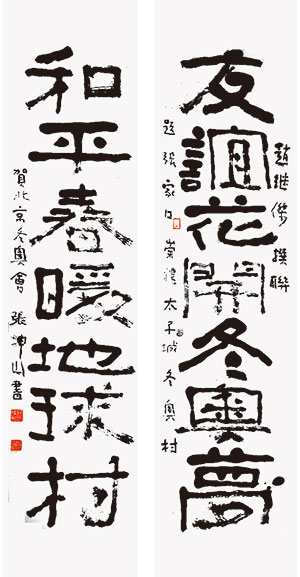 趙继撰聯
友誼花開冬奧夢
題張家口崇禮太子城冬奧村
和平春暖地球村
賀北京冬奧會張坤山書